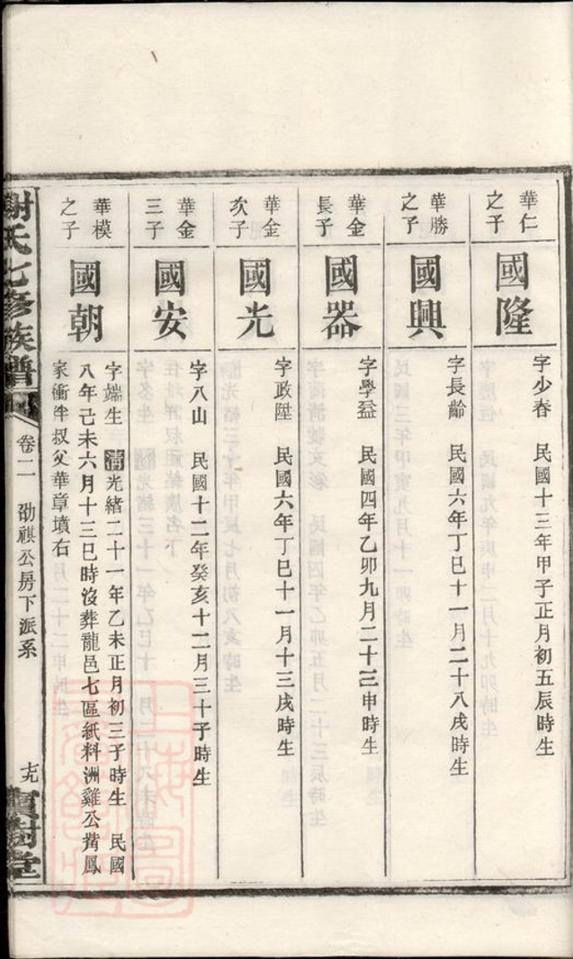 華仁
之子
國隆
字少春 民國十三年甲子正月初五辰時生
華勝
之子
國興
字長齡 民國六年丁巳十一月二十八戌時生
華金
長子
國器
字學益 民國四年乙卯九月二十三申時生
華金
次子
國光
字政陞 民國六年丁巳十一月十三戌時生
華金
三子
國安
字八山 民國十二年癸亥十二月三十子時生
華模
之子
國朝
字端生 清光緒二十一年乙未正月初三子時生 民國
八年己未六月十三巳時沒葬龍邑七區紙料洲雞公揹鳳
家衝伴叔父華章墳右
謝氏七修族譜
卷二 劭祺公房下派系
十九 寶樹堂